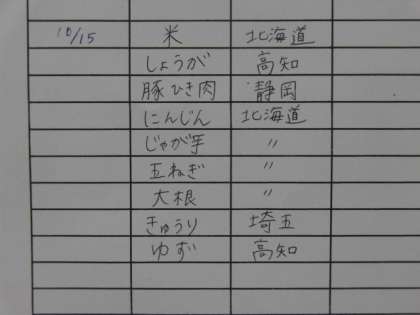 10/15 米 北海道
しょうが 高知
豚ひき肉 静岡
にんじん 北海道
じゃが芋 〃
玉ねぎ 〃
大根 〃
きゅうり 埼玉
ゆず 高知